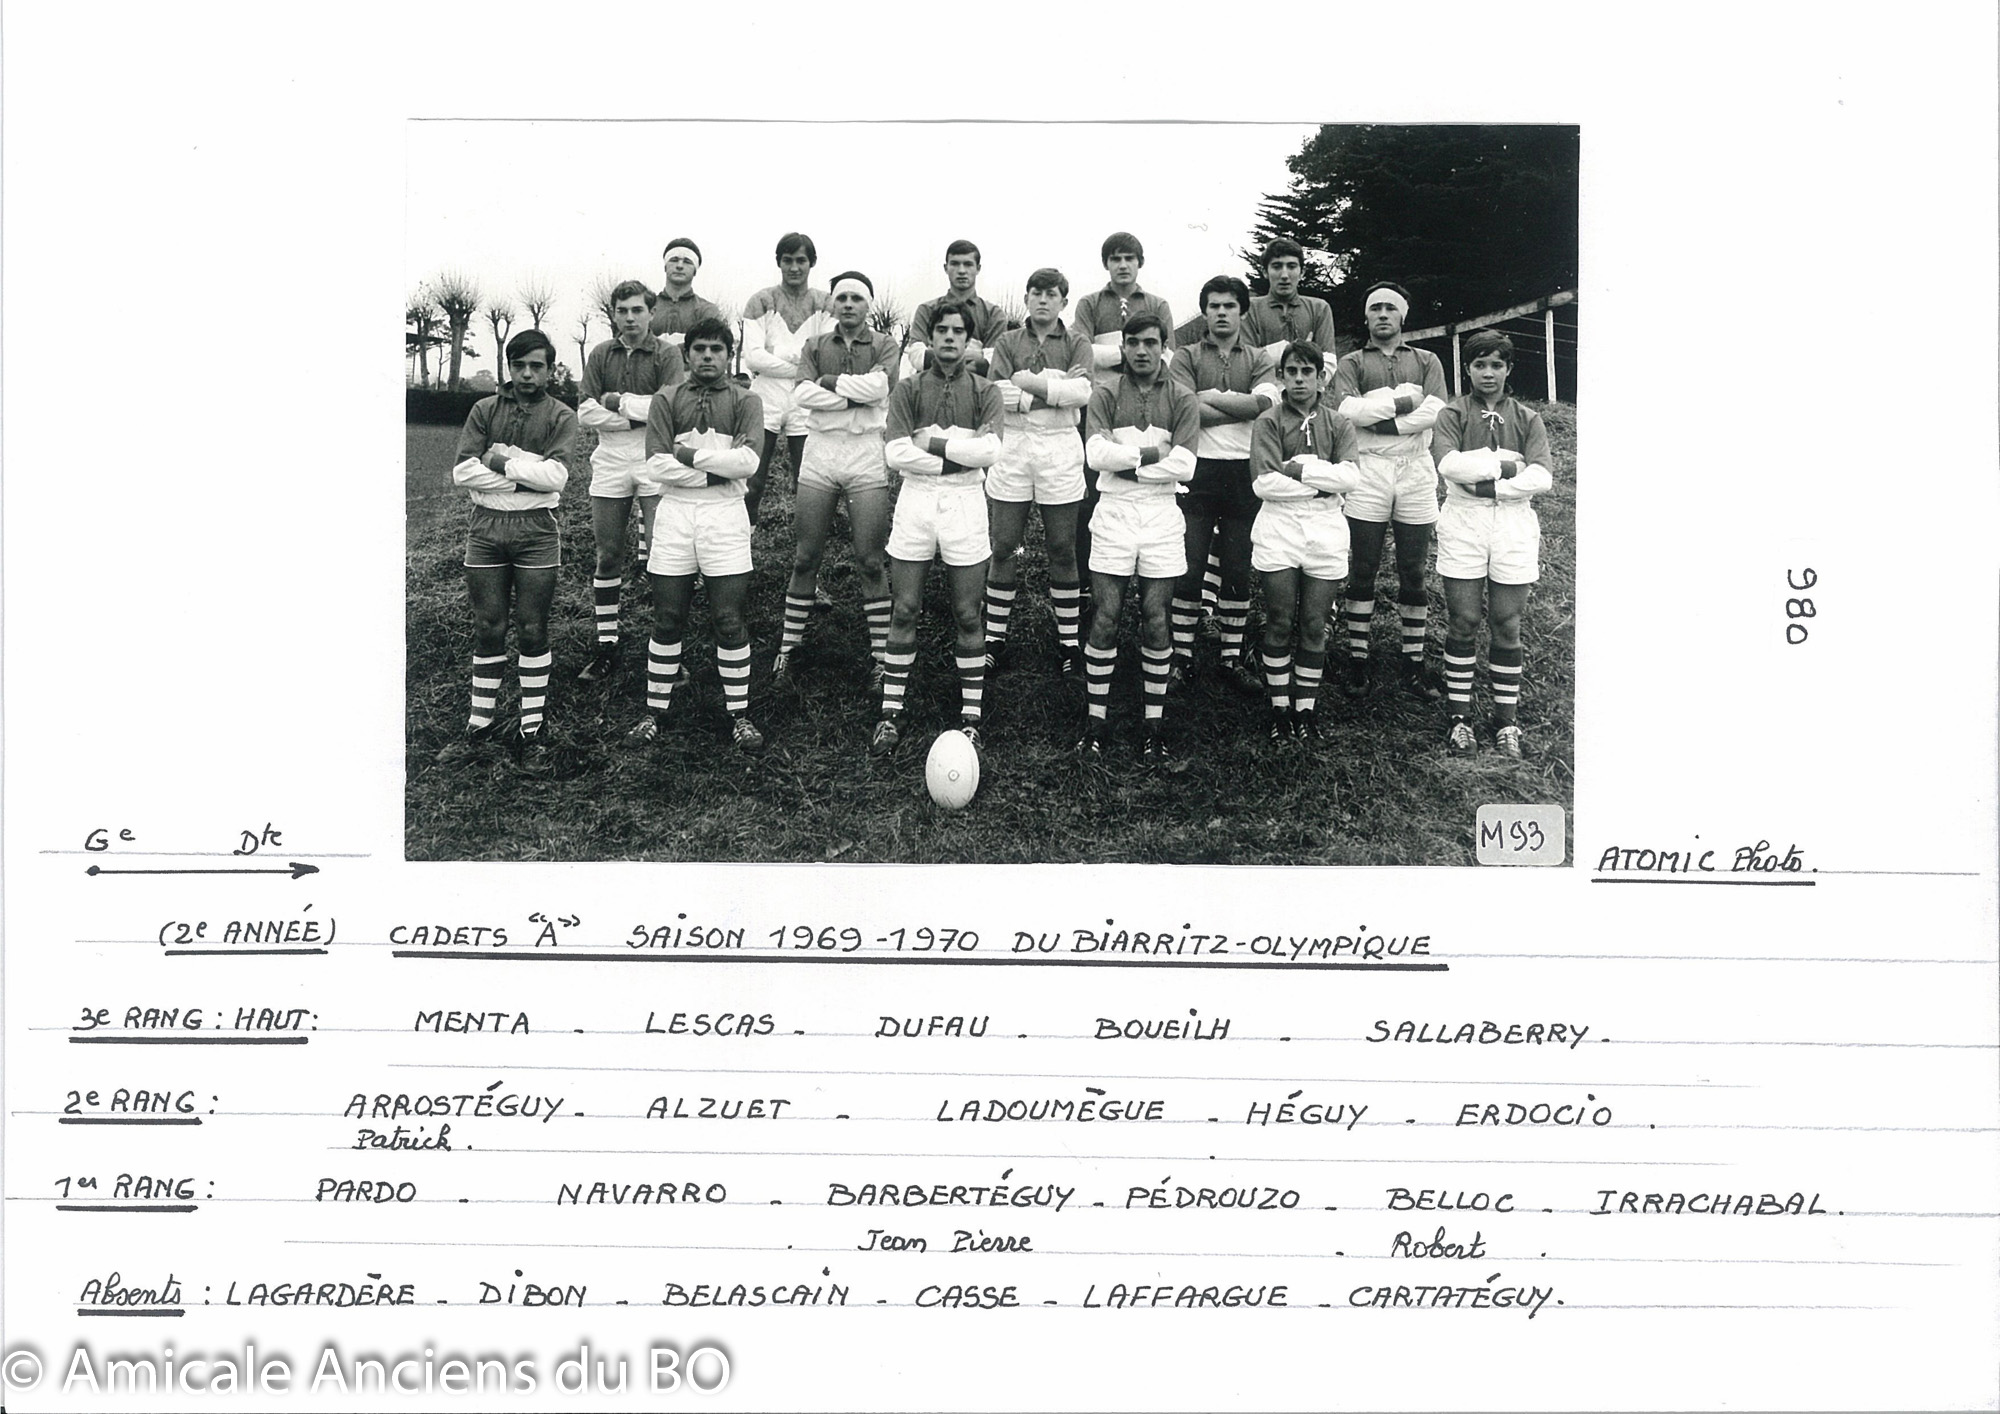 M93
980
Ge Dte
ATOMIC Photo.
(2e ANNÉE) CADETS "A" SAISON 1969-1970 DU BIARRITZ-OLYMPIQUE
3e RANG : HAUT : MENTA - LESCAS - DUFAU - BOUEILH - SALLABERRY.
2e RANG : ARROSTÉGUY - ALZUET - LADOUMÈGUE - HÉGUY - ERDOCIO.
Patrick.
1er RANG : PARDO - NAVARRO - BARBERTÉGUY - PÉDROUZO - BELLOC - IRRACHABAL.
Jean Pierre - Robert.
Absents : LAGARDÈRE - DIBON - BELASCAIN - CASSE - LAFFARGUE - CARTATÉGUY.
© Amicale Anciens du BO